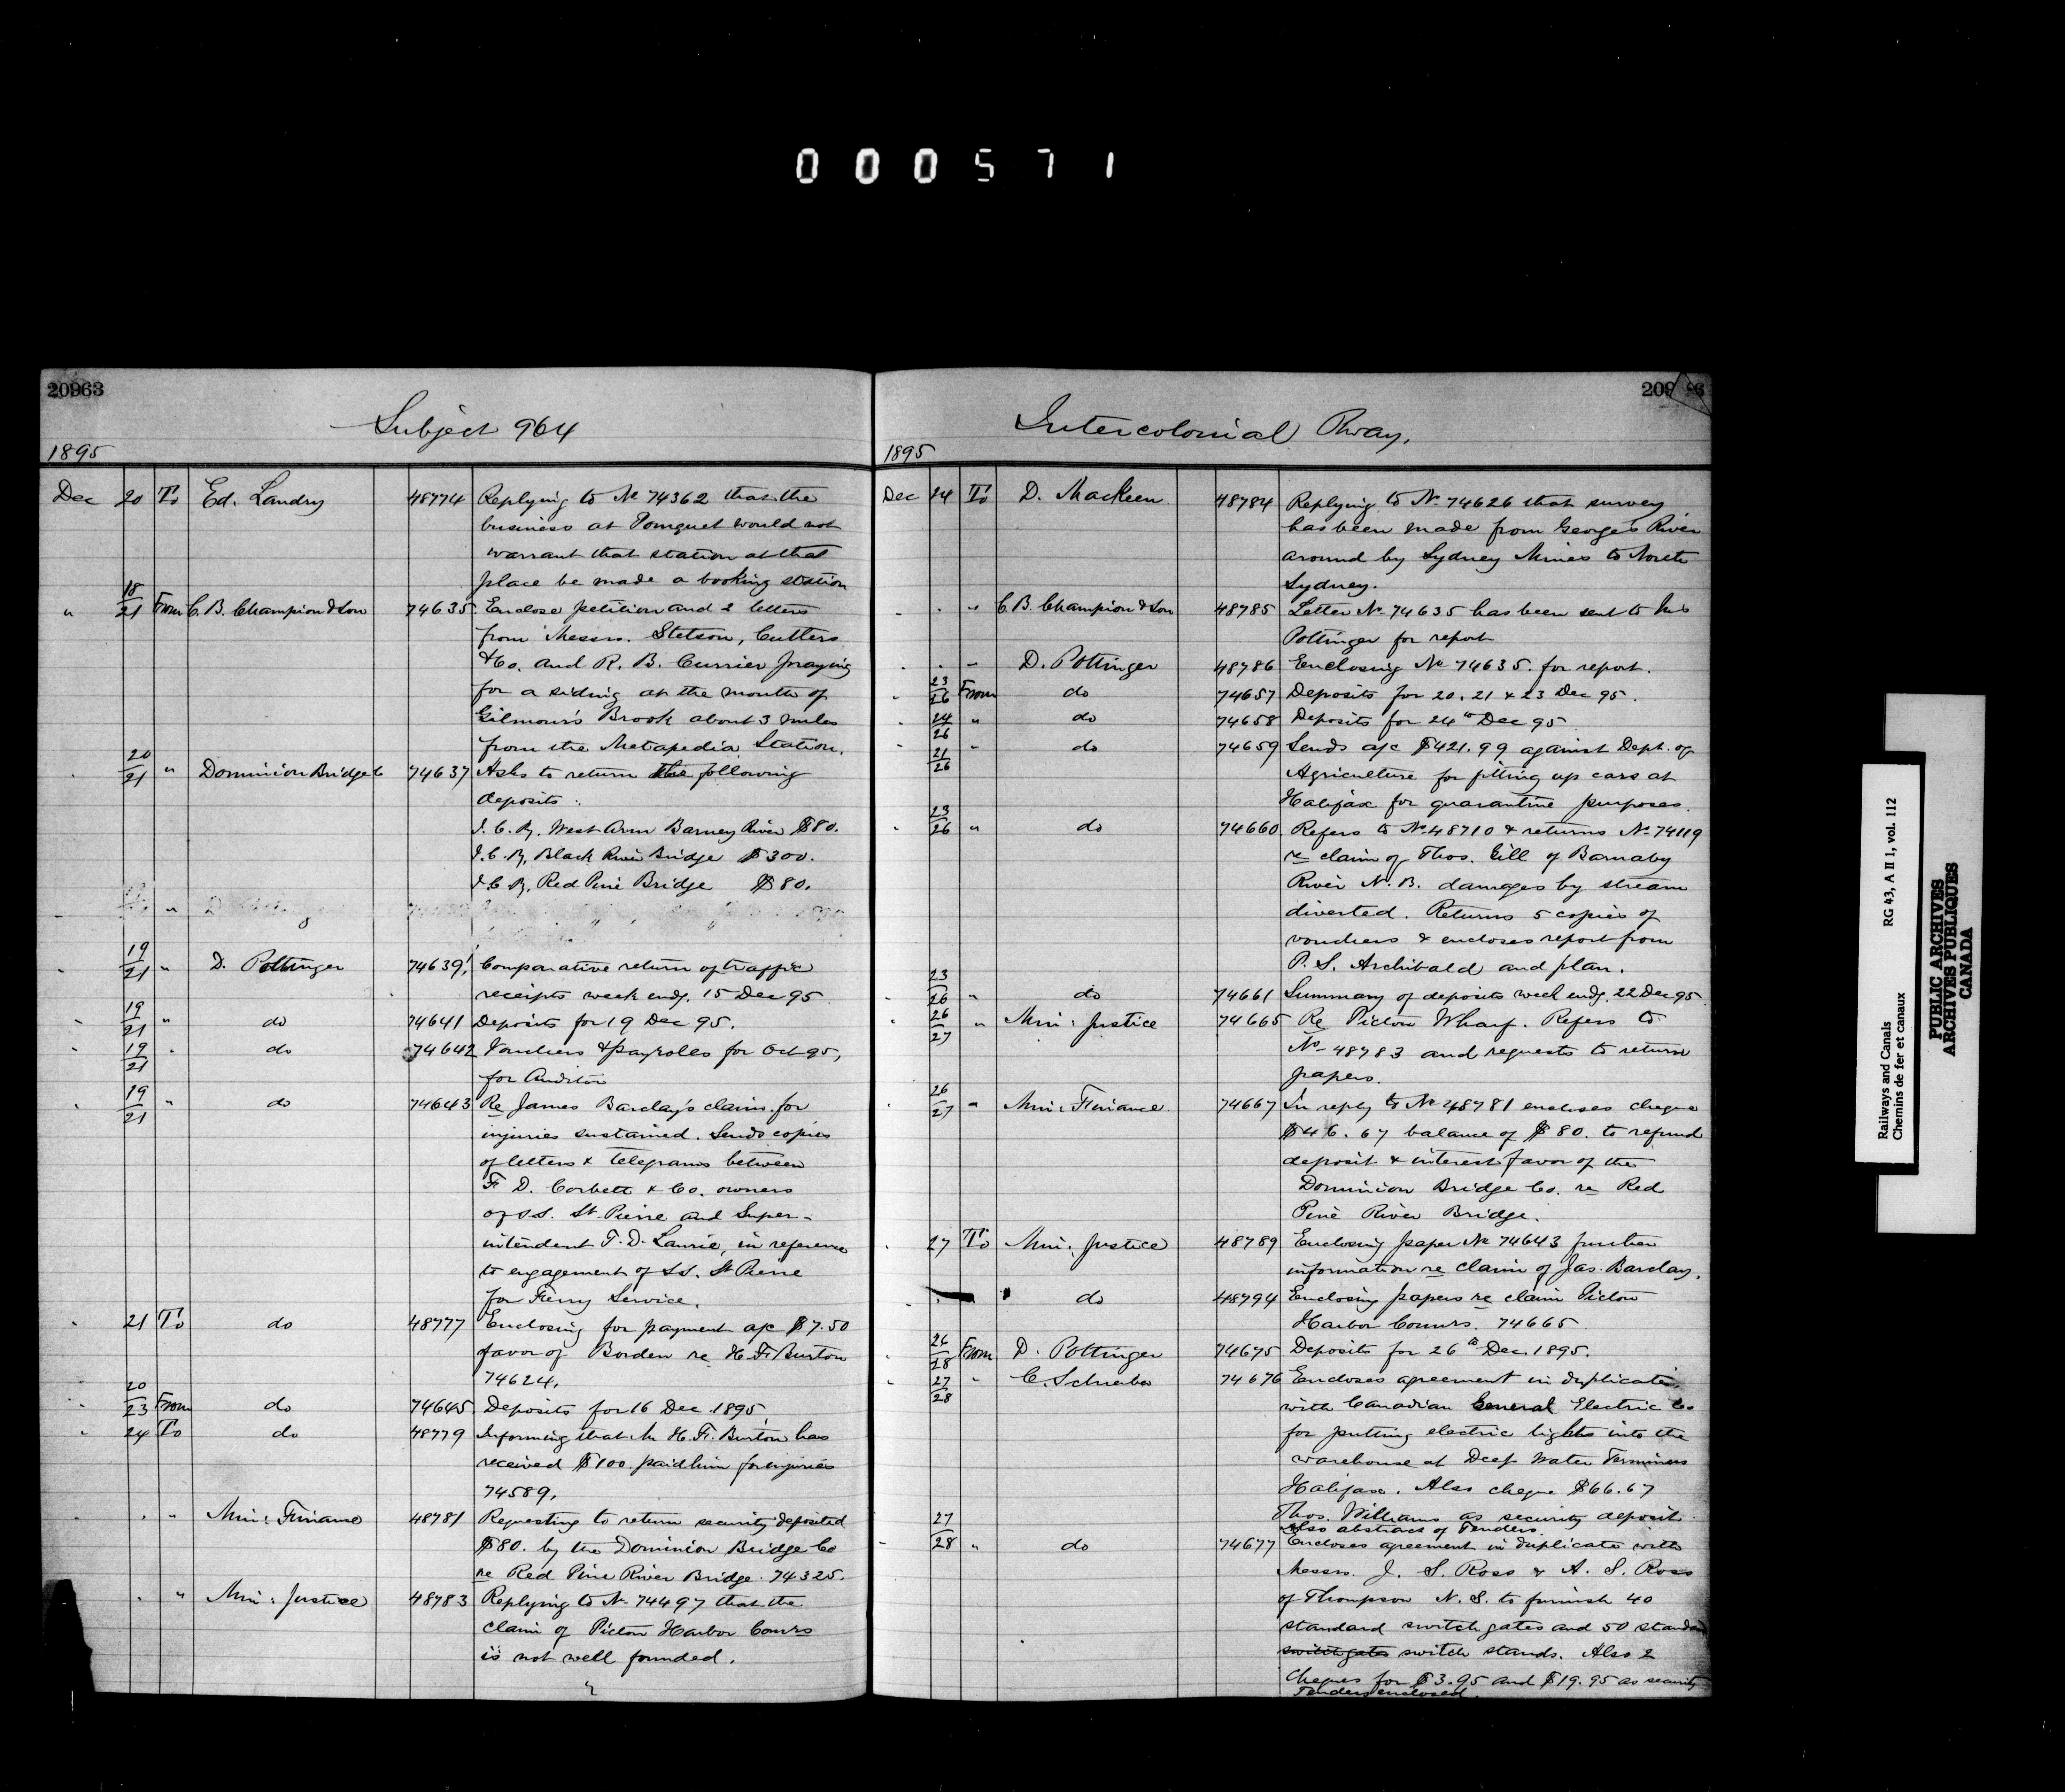 000571
20963
Subject 964
1895
Dec 20 To Ed. Landry 48774 Replying to No 74362 that the
business at Pomquet would not
warrant that station at that
place be made a booking station
" 18/21 From C. B. Champion & Son 74635 Enclose petition and 2 letters
from Messrs. Stetson, Cutters
& Co. and R. B. Currier praying
for a siding at the mouth of
Gilmour's Brook about 3 miles
from the Metapedia Station.
" 20/21 " Dominion Bridge Co 74637 Asks to return the following
deposits:
I.C.Ry. West Arm Barney River $80.
I.C.Ry. Black River Bridge $300.
I.C.Ry. Red Pine Bridge $80.
" 19/21 " D. Pottinger 74639 Comparative return of traffic
receipts week endg. 15 Dec 95
" 19/21 " do 74641 Deposits for 19 Dec 95.
" 19/21 " do 74642 Vouchers & payrolls for Oct 95,
for Auditor
" 19/21 " do 74643 Re James Barclay's claim for
injuries sustained. Sends copies
of letters & telegrams between
F. D. Corbett & Co. owners
of S.S. St. Pierre and Super-
intendent T. D. Laurie, in reference
to engagement of S.S. St Pierre
for Ferry Service.
" 21 To do 48777 Enclosing for payment a/c $7.50
favor of Borden re H. F. Burton
74624.
" 20/23 From do 74645 Deposits for 16 Dec 1895
" 24 To do 48779 Informing that Mr H. F. Burton has
received $100 paid him for injuries
74589.
" " " Min: Finance 48781 Requesting to return security deposited
$80. by the Dominion Bridge Co
re Red Pine River Bridge. 74325.
" " Min: Justice 48783 Replying to No 74497 that the
claim of Pictou Harbor Comrs
is not well founded.
Intercolonial Rway.
1895
Dec 24 To D. MacKeen 48784 Replying to No. 74626 that survey
has been made from Georges River
around by Sydney Mines to North
Sydney.
" " " C. B. Champion & Son 48785 Letter No. 74635 has been sent to Mr
Pottinger for report
" " " D. Pottinger 48786 Enclosing No 74635 for report.
" 23/26 From do 74657 Deposits for 20. 21 & 23 Dec 95.
" 24/26 " do 74658 Deposits for 24th Dec 95
" 21/26 " do 74659 Sends a/c $421.99 against Dept. of
Agriculture for fitting up cars at
Halifax for quarantine purposes.
" 23/26 " do 74660 Refers to No 48710 & returns No 74119
re claim of Thos. Gill of Barnaby
River N.B. damages by stream
diverted. Returns 5 copies of
vouchers & encloses report from
P. S. Archibald and plan.
" 23/26 " do 74661 Summary of deposits week endg. 22 Dec 95
" 26/27 " Min: Justice 74665 Re Pictou Wharf. Refers to
No 48783 and requests to return
papers.
" 26/27 " Min: Finance 74667 In reply to No 48781 encloses cheque
$46.67 balance of $80. to refund
deposit & interest favor of the
Dominion Bridge Co. re Red
Pine River Bridge.
" 27 To Min: Justice 48789 Enclosing paper No 74643 further
information re claim of Jas. Barclay.
" do 48794 Enclosing papers re claim Pictou
Harbor Commrs. 74665
" 26/28 From D. Pottinger 74675 Deposits for 26th Dec. 1895.
" 27/28 " C. Schreiber 74676 Encloses agreement in duplicate
with Canadian General Electric Co
for putting electric lights into the
warehouse at Deep Water Terminus
Halifax. Also cheque $66.67
Thos. Williams as security deposit
Also abstract of Tenders.
" 27/28 " do 74677 Encloses agreement in duplicate with
Messrs. J. S. Ross & A. S. Ross
of Thompson N.S. to furnish 40
standard switch gates and 50 standard
switch gates switch stands. Also 2
cheques for $3.95 and $19.95 as security
Tenders enclosed.
Railways and Canals
Chemins de fer et canaux
RG 43, A II 1, vol. 112
PUBLIC ARCHIVES
ARCHIVES PUBLIQUES
CANADA